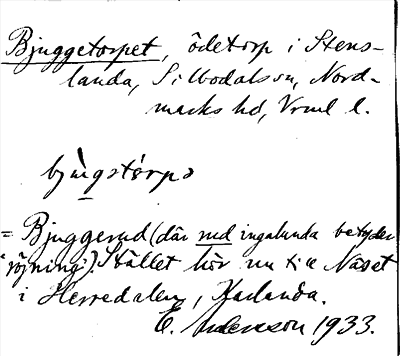 Bjuggetorpet, ödetorp i Stens-
landa, Silbodalssn, Nord-
marks hd, Vrml l.
bju̇gstȯrpə
= Bjuggerud (där rud ingalunda betyder
'röjning'). Stället hör nu till Näset
i Herredalen, Karlanda.
E. Andersson 1933.